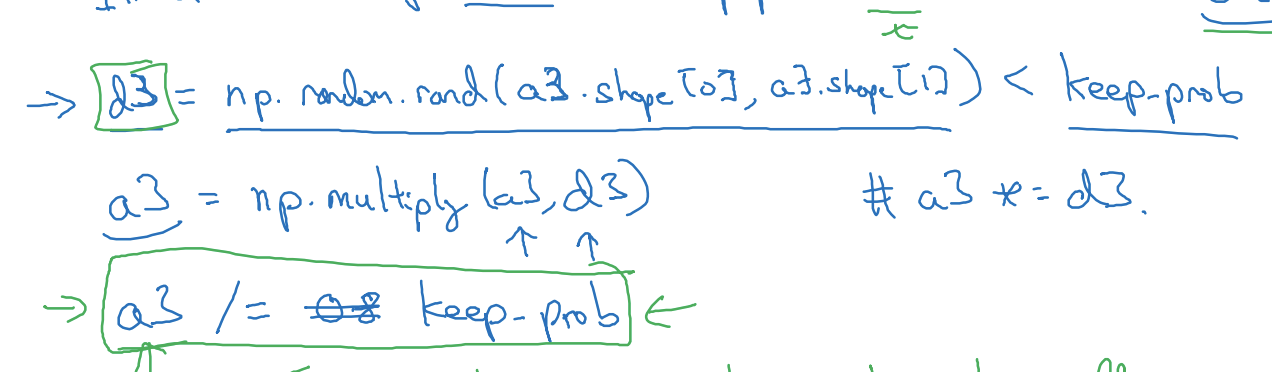 d3 = np.random.rand(a3.shape[0], a3.shape[1]) < keep-prob
a3 = np.multiply(a3, d3) # a3 *= d3.
a3 /= 0.8 keep-prob